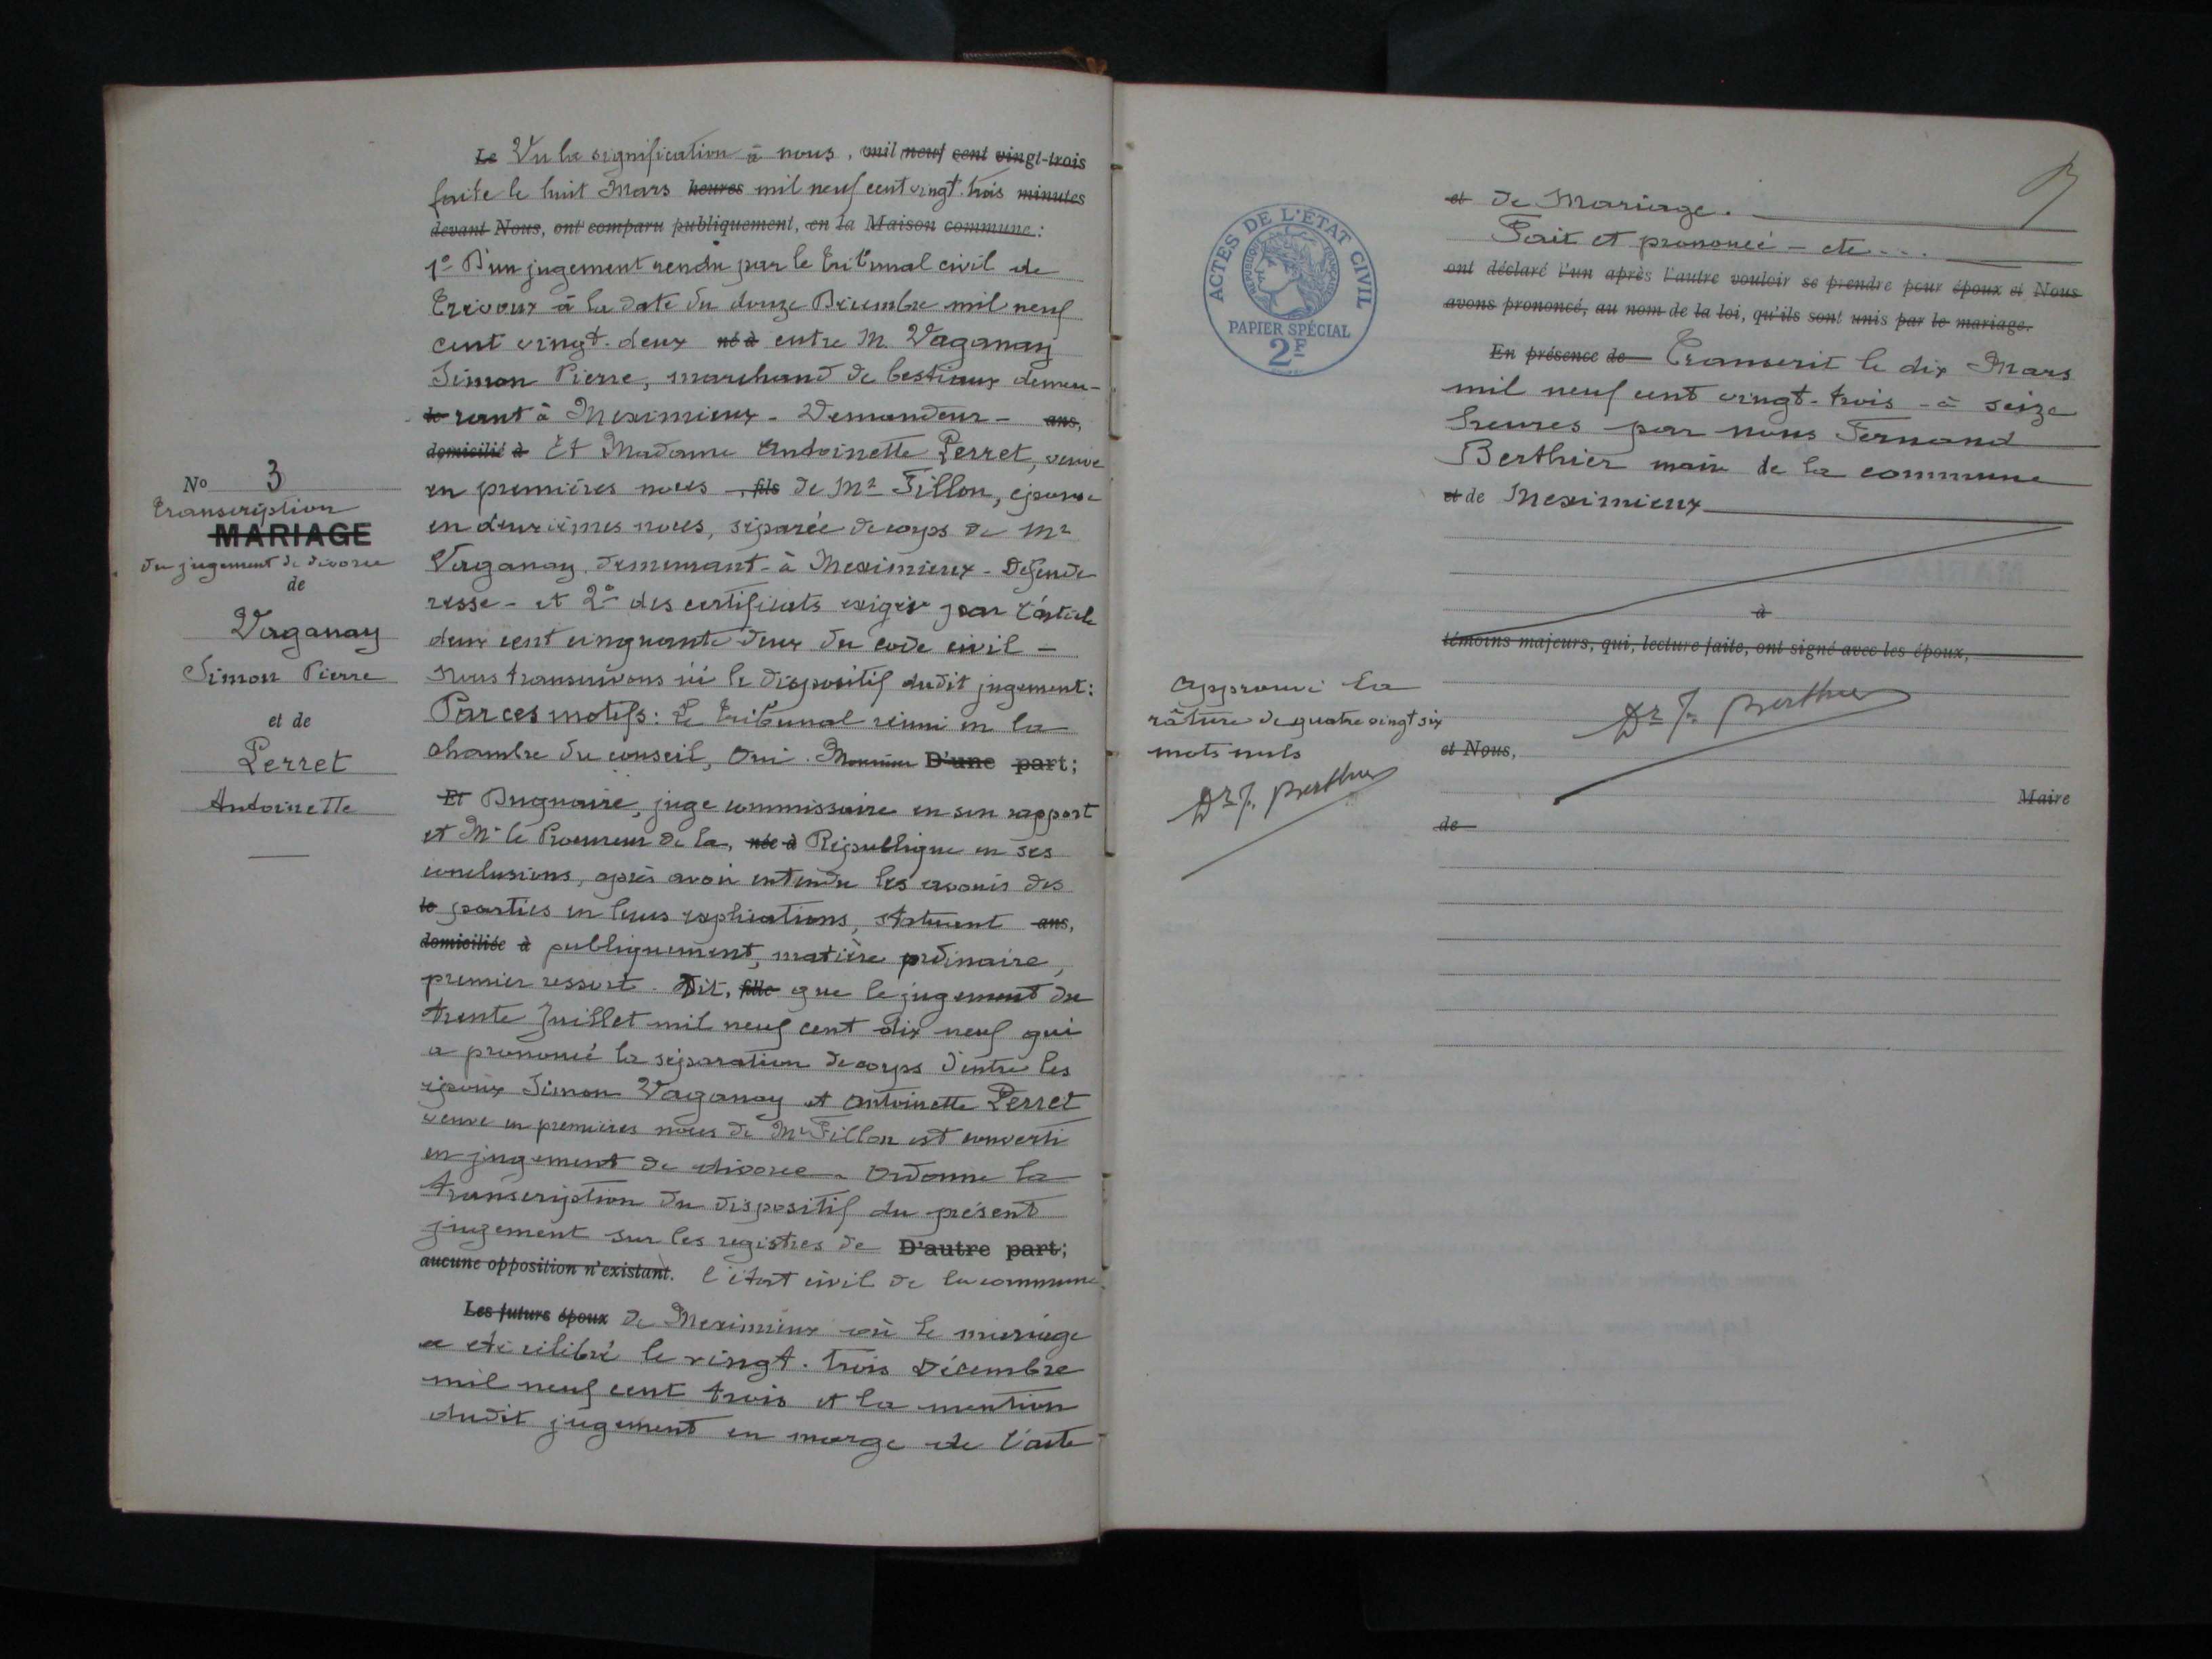 No 3
transcription
MARIAGE
du jugement de divorce
de
Vaganay
Simon Pierre
et de
Perret
Antoinette
Le Vu la signification à nous, mil neuf cent vingt-trois
faite le huit Mars heures mil neuf cent vingt-trois minutes
devant Nous, ont comparu publiquement, en la Maison commune:
1° D'un jugement rendu par le tribunal civil de
Trévoux à la date du douze Décembre mil neuf
cent vingt-deux né à entre M. Vaganay
Simon Pierre, marchand de bestiaux demeu-
le rant à Meximieux - Demandeur - ans,
domicilié à Et Madame Antoinette Perret, veuve
en premières noces fils de Mr Fillon, épouse
en deuxièmes noces, séparée de corps de Mr
Vaganay, demeurant à Meximieux - Défende
resse - et 2° des certificats exigés par l'article
deux cent cinquante deux du code civil -
nous transcrivons ici le dispositif dudit jugement:
Par ces motifs: Le tribunal réuni en la
chambre du conseil, Oui. Monsieur D'une part;
Et Dugnaire, juge commissaire en son rapport
et Mr le Procureur de la, née à République en ses
conclusions, après avoir entendu les avoués des
le parties en leurs explications, statuent ans,
domiciliée à publiquement, matière ordinaire,
premier ressort. Dit, fille que le jugement du
trente Juillet mil neuf cent dix neuf qui
a prononcé la séparation de corps d'entre les
époux Simon Vaganay et Antoinette Perret
veuve en premières noces de Mr Fillon est converti
en jugement de divorce. Ordonne la
transcription du dispositif du présent
jugement sur les registres de D'autre part;
aucune opposition n'existant. l'état civil de la commune
Les futurs époux de Meximieux où le mariage
a été célébré le vingt-trois Décembre
mil neuf cent trois et la mention
dudit jugement en marge de l'acte
ACTES DE L'ÉTAT CIVIL
RÉPUBLIQUE FRANÇAISE
PAPIER SPÉCIAL
2F
et de Mariage.
Fait et prononcé - etc...
ont déclaré l'un après l'autre vouloir se prendre pour époux et Nous
avons prononcé, au nom de la loi, qu'ils sont unis par le mariage.
En présence de Transcrit le dix Mars
mil neuf cent vingt-trois - à seize
heures par nous Fernand
Berthier maire de la commune
et de Meximieux
à
témoins majeurs, qui, lecture faite, ont signé avec les époux,
Approuvé la
râture de quatre vingt six
mots nuls
Dr F. Berthier
Dr F. Berthier
et Nous,
Maire
de